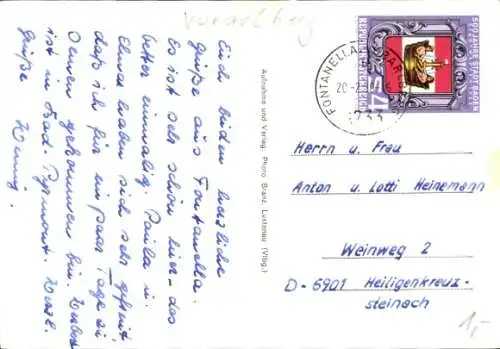 Vorarlberg
Euch beiden herzliche
Grüße aus Fontanella.
Es ist sehr schön hier - das
Wetter einmalig. Paula u.
Elmar haben sich sehr gefreut
daß ich für ein paar Tage zu
Ihnen gekommen bin. Herbert
ist in Bad Pyrmont. Herzl.
Grüße
Aufnahme und Verlag: Photo Branz, Lustenau (Vlbg.)
500 JAHRE STADT BADEN
REPUBLIK ÖSTERREICH
S 4
FONTANELLA
6733
Herrn u. Frau
Anton u. Lotti Heinemann
Weinweg 2
D-6901 Heiligenkreuz-
steinach
1,-